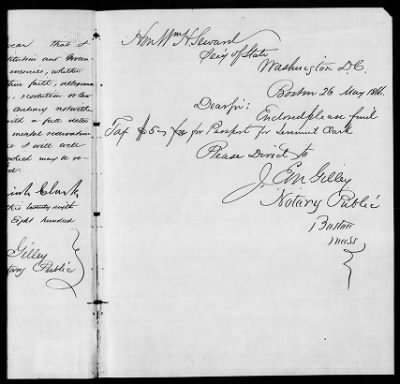 year that I
stitution and Govern-
enemies, whether
true faith, allegiance
, resolution or law
contrary notwith-
with a full deter
mental reservation
I will well
which may be re-
Clark
this twenty sixth
Eight hundred
Gilley
tary Public
Hon Wm H Seward
Secy of State
Washington D.C.
Boston 26 May 186
Dear Sir: Enclosed please find
Tax $5 for Passport for Clark
Please Direct to
J. Em Gilley
Notary Public
Boston
Mass